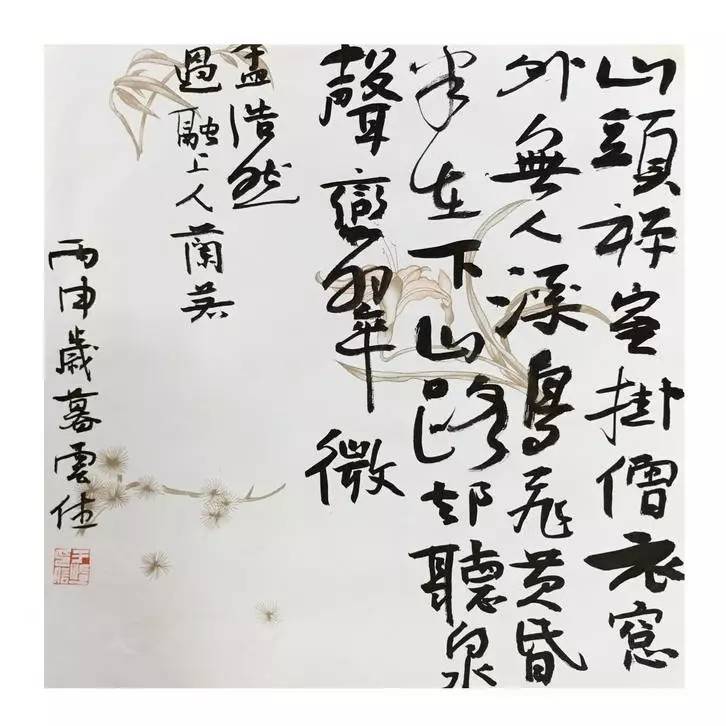 山頭禪室掛僧衣窓
外無人溪鳥飛黄昏
半在下山路却聽泉
聲戀翠微
孟浩然
過融上人蘭若
丙申歲暮雲